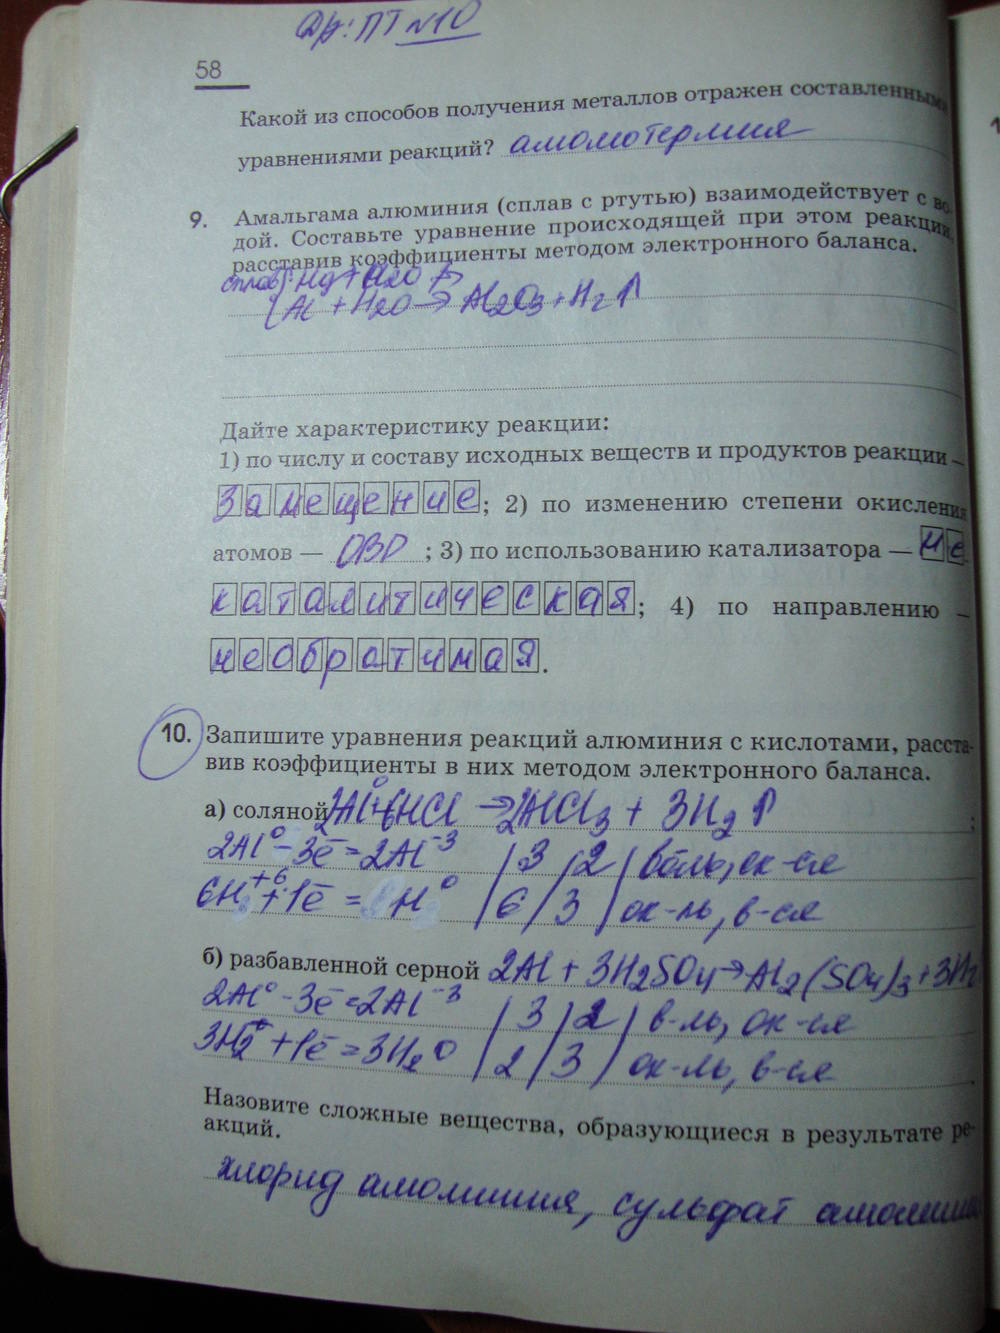 Др: ПТ №10
58
Какой из способов получения металлов отражен составленными
уравнениями реакций? алюмотермия
9. Амальгама алюминия (сплав с ртутью) взаимодействует с во-
дой. Составьте уравнение происходящей при этом реакции,
расставив коэффициенты методом электронного баланса.
сплав Hg + H2O
Al + H2O → Al2O3 + H2↑
Дайте характеристику реакции:
1) по числу и составу исходных веществ и продуктов реакции –
Замещение; 2) по изменению степени окисления
атомов — ОВР; 3) по использованию катализатора — не
каталитическая; 4) по направлению –
необратимая.
10. Запишите уравнения реакций алюминия с кислотами, расста-
вив коэффициенты в них методом электронного баланса.
а) соляной 2Al⁰+6HCl → 2AlCl3 + 3H2↑ ;
2Al⁰ - 3ē = 2Al⁻³ | 3 | 2 | восль, ок-ся
6H⁺⁶ + 1ē = H⁰ | 6 | 3 | ок-ль, в-ся
б) разбавленной серной 2Al + 3H2SO4 → Al2(SO4)3 + 3H2
2Al⁰ - 3ē = 2Al⁻³ | 3 | 2 | в-ль, ок-ся
3H2⁺ + 1ē = 3H2 0 | 2 | 3 | ок-ль, в-ся
Назовите сложные вещества, образующиеся в результате ре-
акций.
хлорид алюминия, сульфат алюминия